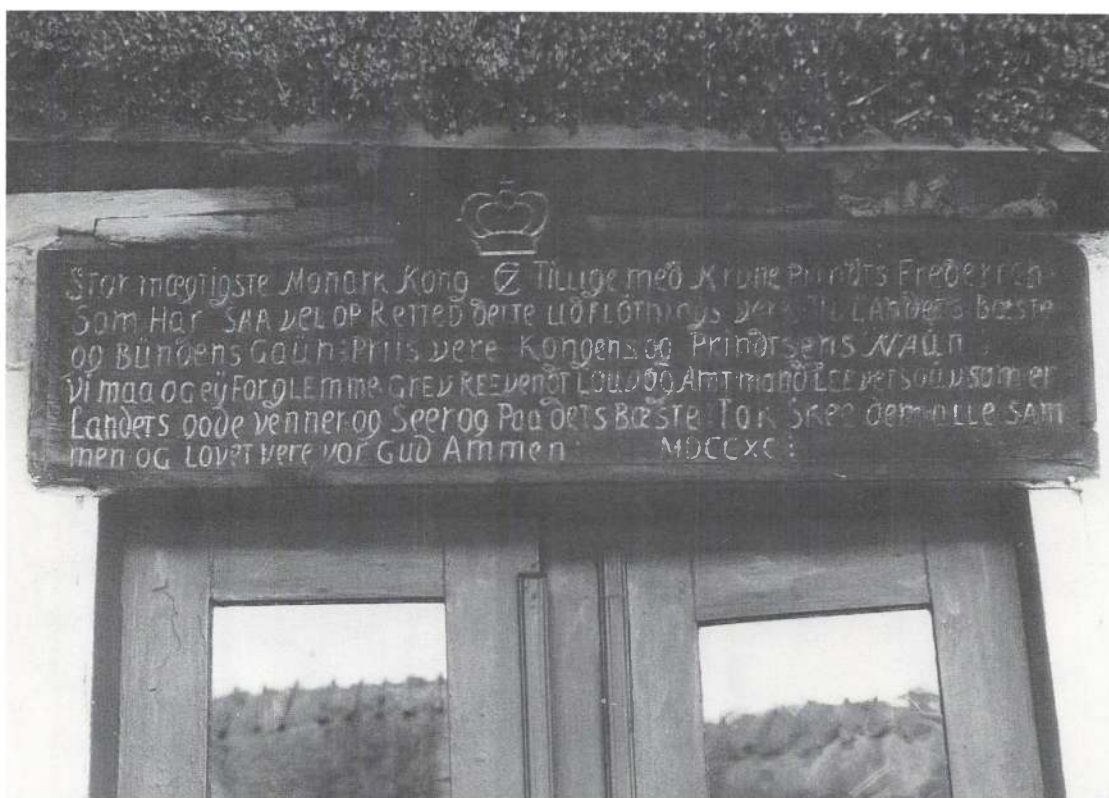 Stor mægtigste Monark Kong C7 Tillige med Krone Prindts Frederich
Som Har SAA vel OP Retted dette Udflötnings verk TIL LAndets bæste
og Bündens Gaün: Priis vere Kongens og Prindtsens NAün
Vi maa og eÿ ForgLEmme GREV REEvendtLOUV og AmtmandLEEvetsouv som er
Landets gode venner og Seer og Paa dets Bæste TaK SKee dem alle SAM
men og Lovet vere vor GuD Ammen MDCCXCI